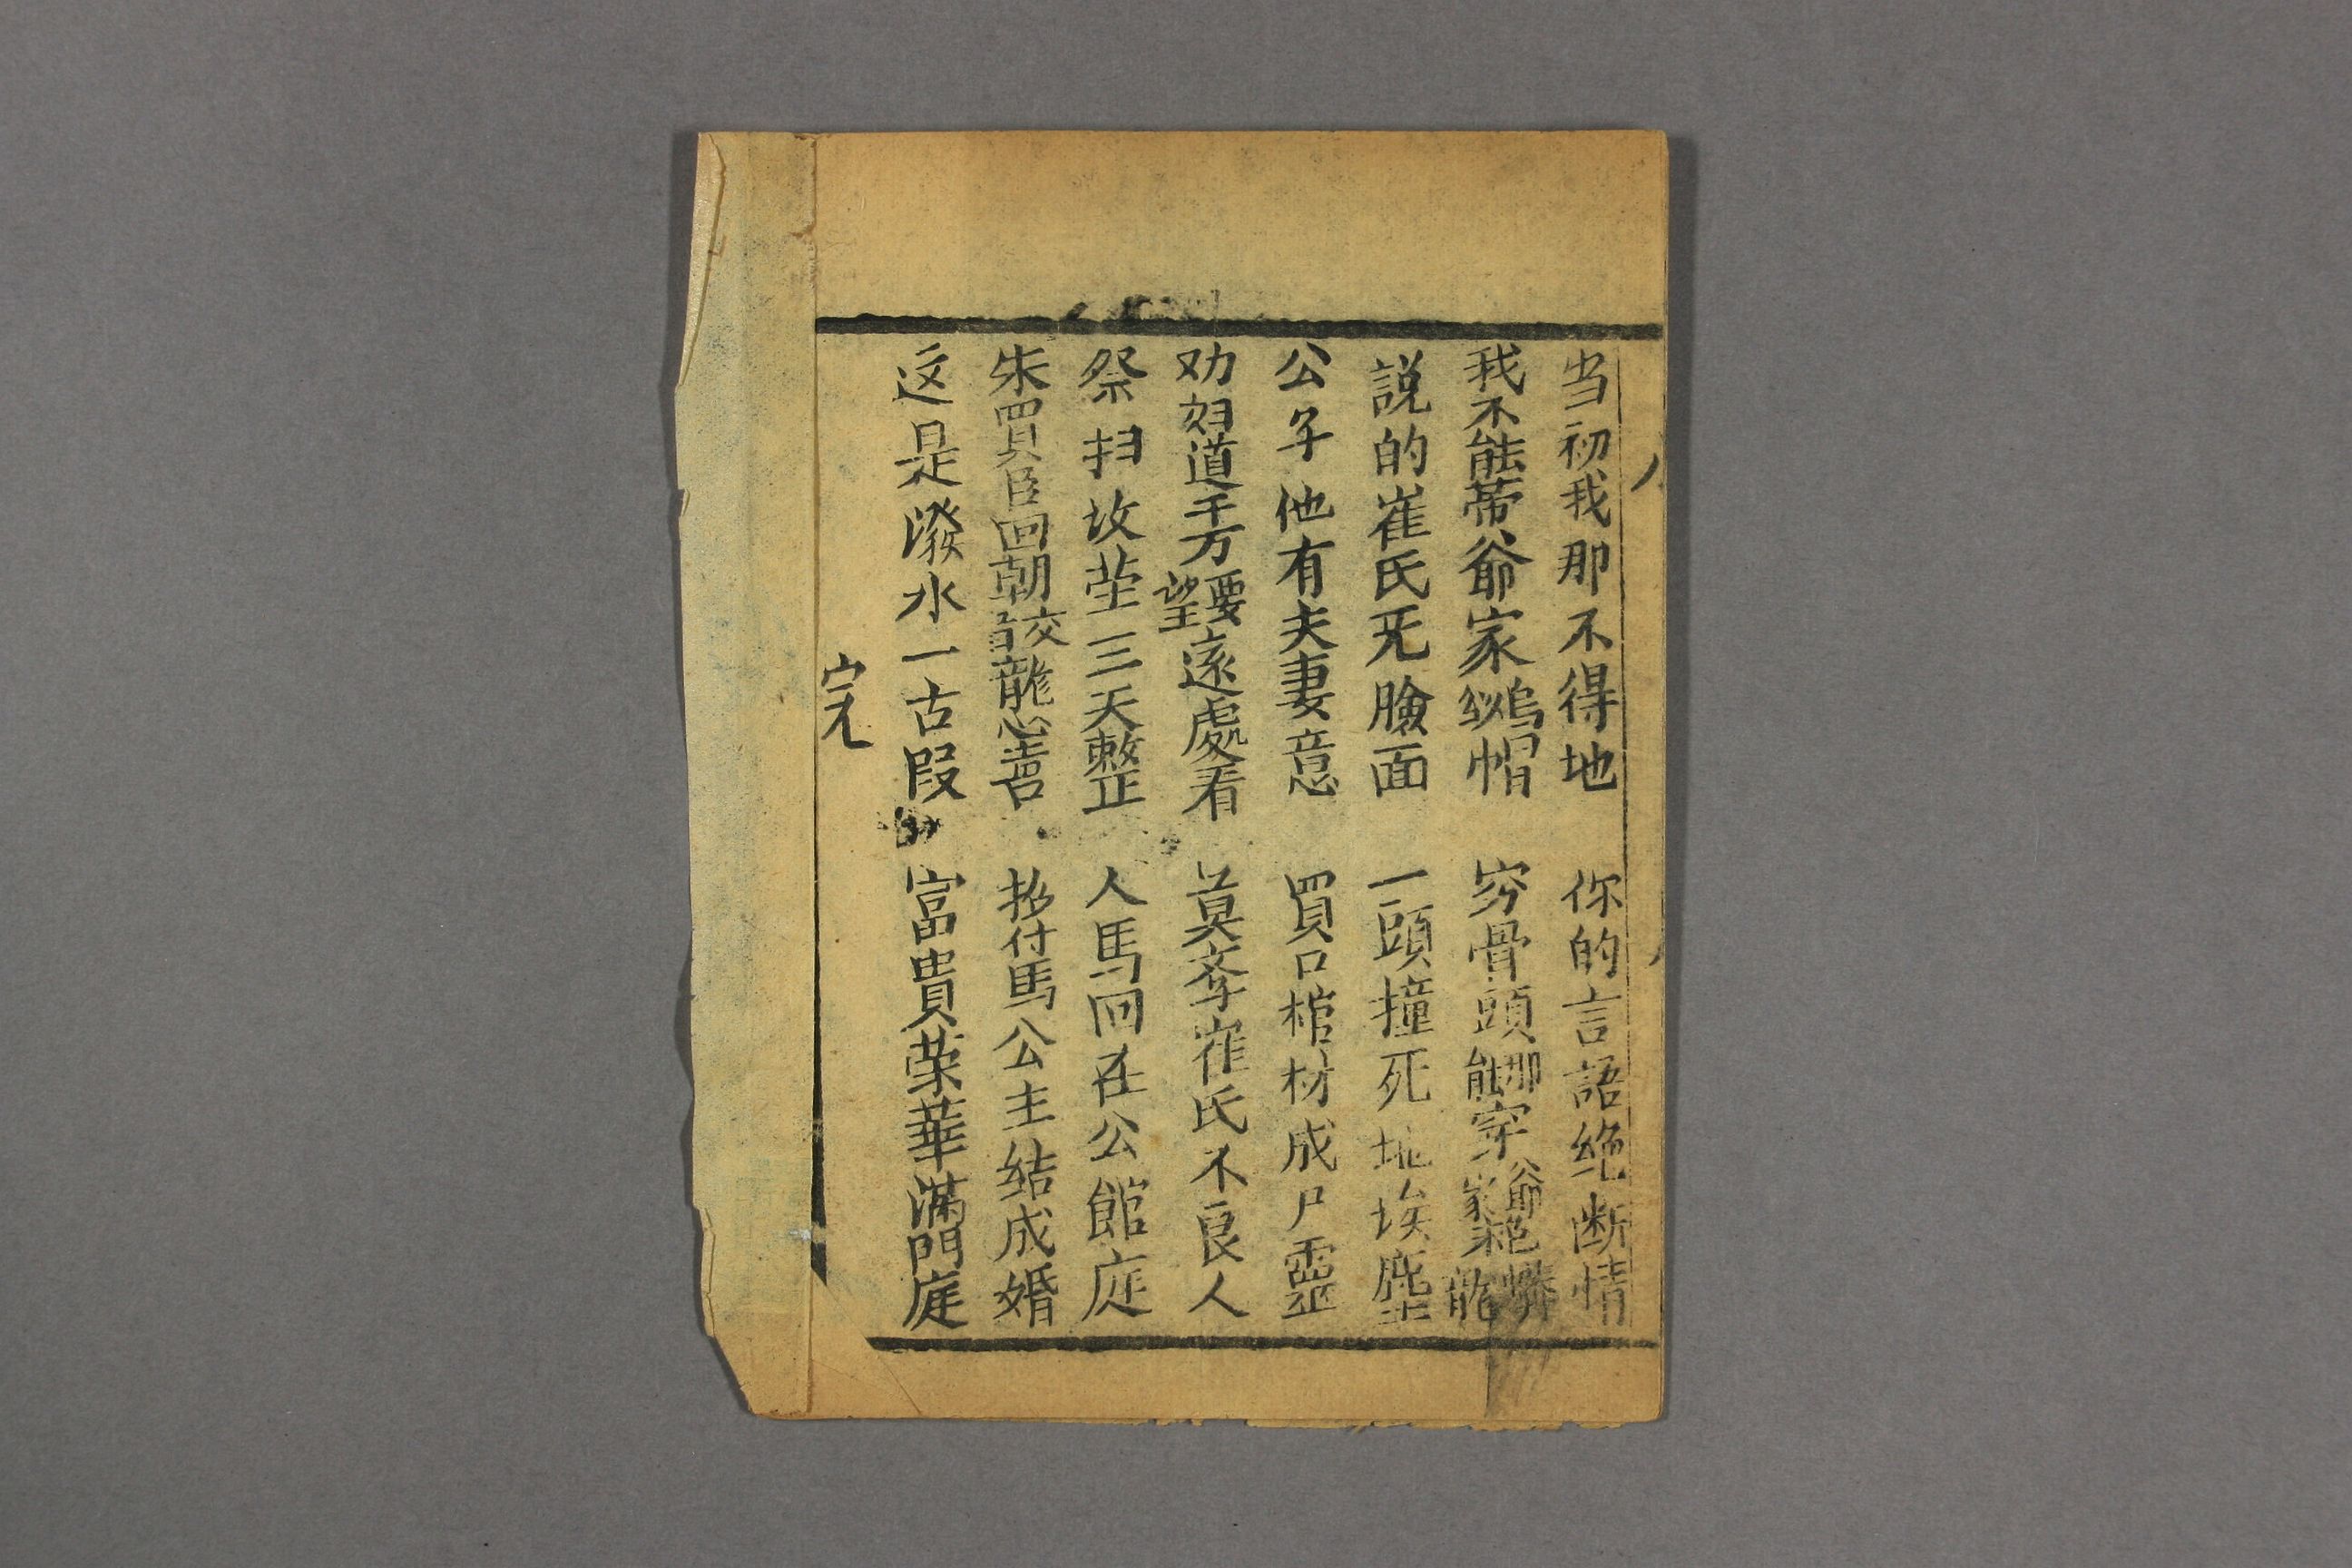 当初我那不得地 你的言語绝断情
我不能带爺家烏紗帽 穷骨頭那能穿爺家絕蟒龍
説的崔氏无臉面 一頭撞死地埃塵
公子他有夫妻意 買口棺材成尸靈
劝妇道千万要望遠處看 莫李崔氏不良人
祭扫坟茔三天整 人馬回在公館庭
朱買臣回朝交旨龍心喜 招付馬公主结成婚
这是潑水一古段 富貴荣華滿門庭
完